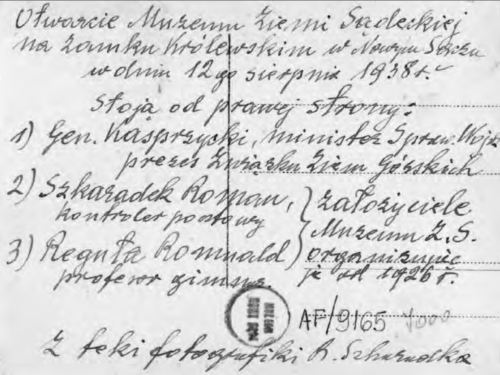 Otwarcie Muzeum Ziemi Sądeckiej
na zamku Królewskim w Nowym Sączu
w dniu 12-go sierpnia 1938 r.
Stoją od prawej strony:
1) Gen. Kasprzycki, minister Spraw. Wojsk
prezes Związku Ziem Górskich
2) Szkaradek Roman, } założyciele
kontroler pocztowy Muzeum Z. S.
3) Reguła Romuald } organizując
profesor gimn. je od 1926 r.
AF/9165 4000
Z teki fotografiki R. Szkaradka